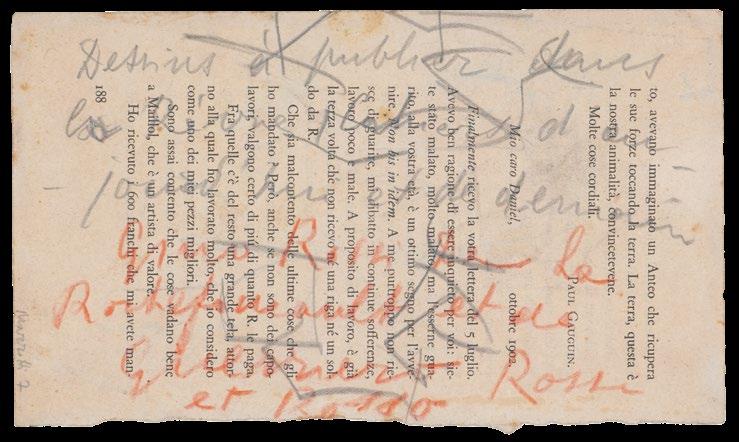 Dessins à publier dans
et de
Rosso
et Rosso
to, avevano immaginato un Anteo che ricupera
le sue forze toccando la terra. La terra, questa è
la nostra animalità, convincetevene.
Molte cose cordiali.
PAUL GAUGUIN.
Mio caro Daniel, ottobre 1902.
Finalmente ricevo la vostra lettera del 5 luglio.
Avevo ben ragione di essere inquieto per voi: sie-
te stato malato, molto malato, ma l'esserne gua-
rito, alla vostra età, è un ottimo segno per l'avve-
nire. Non bis in idem. A me purtroppo non rie-
sce di guarire, mi dibatto in continue sofferenze,
lavoro poco e male. A proposito di lavoro, è già
la terza volta che non ricevo né una riga né un sol-
do da R.
Che sia malcontento delle ultime cose che gli
ho mandato? Però, anche se non sono dei capo-
lavori, valgono certo di più di quanto R. le paga.
Fra quelle c'è del resto una grande tela, attor-
no alla quale ho lavorato molto, che io considero
come uno dei miei pezzi migliori.
Sono assai contento che le cose vadano bene
a Maillol, che è un artista di valore.
Ho ricevuto i 600 franchi che mi avete man-
188